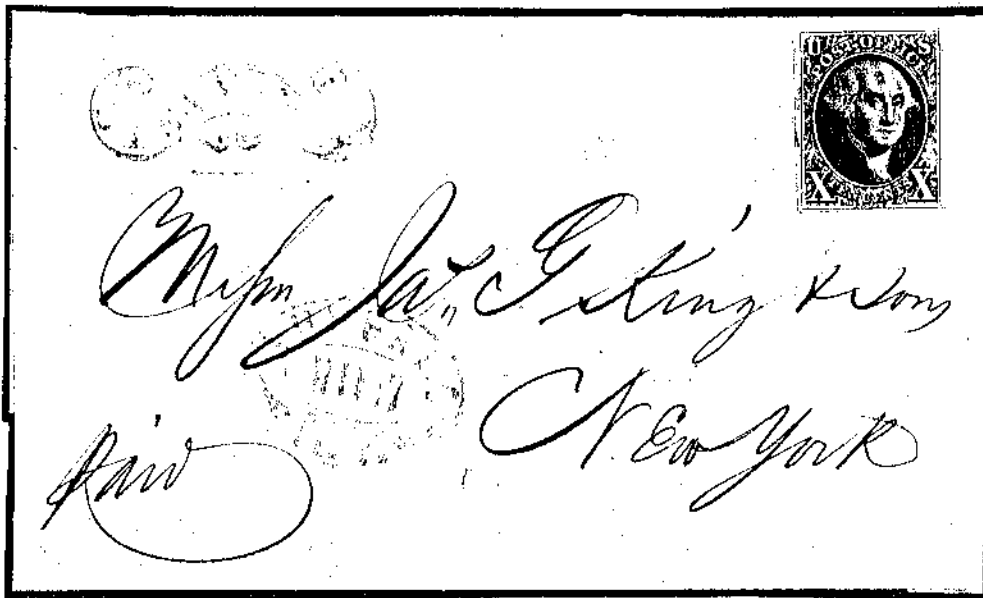 U S
POST OFFICE
X X
TEN CENTS
Messrs Jas, G King & Sons
New York
Paid